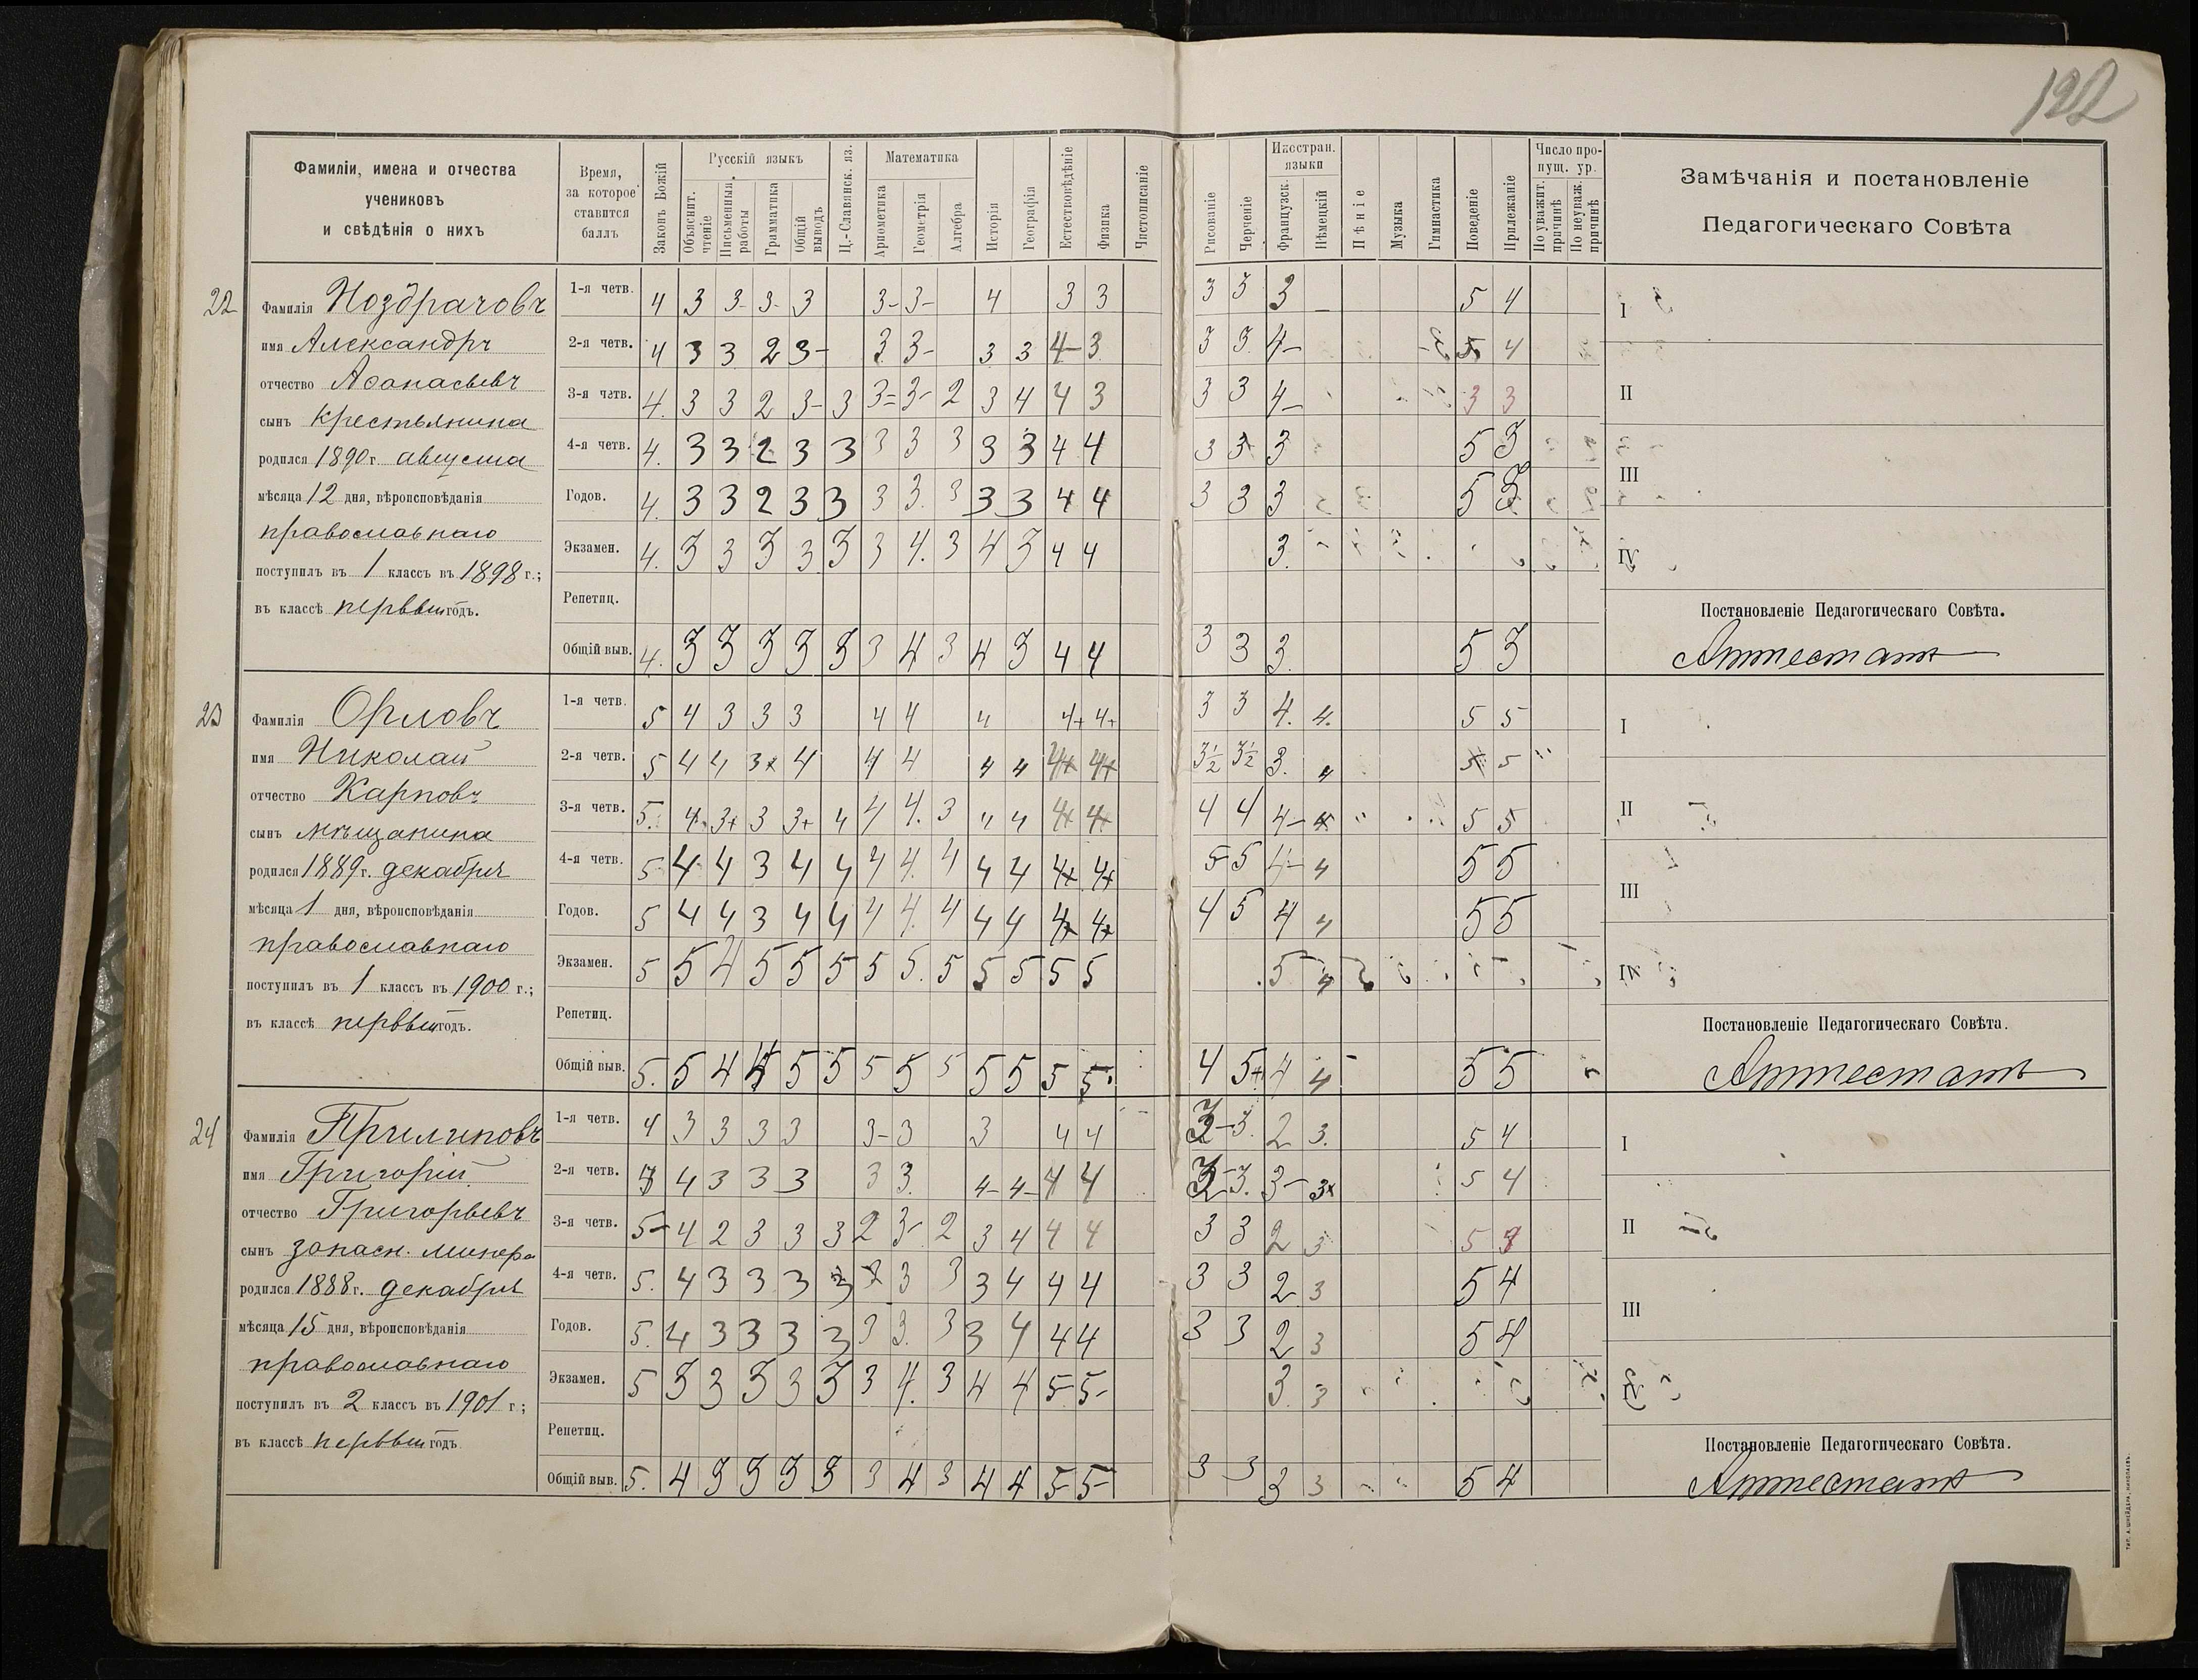 122
Фамиліи, имена и отчества
учениковъ
и свѣдѣнія о нихъ
Время,
за которое
ставится
баллъ
Законъ Божій
Русскій языкъ
Объяснит. чтеніе
Письменныя работы
Грамматика
Общій выводъ
Ц.-Славянск. яз.
Математика
Ариѳметика
Геометрія
Алгебра
Исторія
Географія
Естествовѣдѣніе
Физика
Чистописаніе
Рисованіе
Черченіе
Иностран. языки
Французск.
Нѣмецкій
Пѣніе
Музыка
Гимнастика
Поведеніе
Прилежаніе
Число пропущ. ур.
По уважит. причинѣ
По неуваж. причинѣ
Замѣчанія и постановленіе
Педагогическаго Совѣта
22
Фамилія Ноздрачовъ
имя Александръ
отчество Аѳанасьевъ
сынъ крестьянина
родился 1890 г. августа
мѣсяца 12 дня, вѣроисповѣданія
православнаго
поступилъ въ 1 классъ въ 1898 г.;
въ классѣ первый годъ.
1-я четв. 4 3 3- 3- 3 3- 3- 4 3 3 3 3 3 5 4
2-я четв. 4 3 3 2 3- 3 3- 3 3 4- 3 3 3 4- 5 4
3-я четв. 4. 3 3 2 3- 3 3= 3- 2 3 4 4 3 3 3 4- 3 3
4-я четв. 4. 3 3 2 3 3 3 3 3 3 3 4 4 3 3 3 5 3
Годов. 4. 3 3 2 3 3 3 3. 3 3 3 4 4 3 3 3 5 3
Экзамен. 4. 3 3 3 3 3 3 4. 3 4 3 4 4 3.
Репетиц.
Общій выв. 4. 3 3 3 3 3 3 4 3 4 3 4 4 3 3 3. 5 3
I
II
III
IV
Постановленіе Педагогическаго Совѣта.
Аттестатъ
23
Фамилія Орловъ
имя Николай
отчество Карповъ
сынъ мѣщанина
родился 1889 г. декабря
мѣсяца 1 дня, вѣроисповѣданія
православнаго
поступилъ въ 1 классъ въ 1900 г.;
въ классѣ первый годъ.
1-я четв. 5 4 3 3 3 4 4 4 4+ 4+ 3 3 4. 4. 5 5
2-я четв. 5 4 4 3+ 4 4 4 4 4 4+ 4+ 3½ 3½ 3. 4 5 5
3-я четв. 5. 4 3+ 3 3+ 4 4 4. 3 4 4 4+ 4+ 4 4 4- 4 5 5
4-я четв. 5 4 4 3 4 4 4 4. 4 4 4 4+ 4+ 5 5 4- 4 5 5
Годов. 5 4 4 3 4 4 4 4. 4 4 4 4+ 4+ 4 5 4 4 5 5
Экзамен. 5 5 4 5 5 5 5 5. 5 5 5 5 5 5 4
Репетиц.
Общій выв. 5. 5 4 4 5 5 5 5 5 5 5 5 5 4 5+ 4 4 5 5
I
II
III
IV
Постановленіе Педагогическаго Совѣта.
Аттестатъ
24
Фамилія Прилиповъ
имя Григорій
отчество Григорьевъ
сынъ запасн. минера
родился 1888 г. декабря
мѣсяца 15 дня, вѣроисповѣданія
православнаго
поступилъ въ 2 классъ въ 1901 г.;
въ классѣ первый годъ
1-я четв. 4 3 3 3 3 3- 3 3 4 4 3- 3. 2 3. 5 4
2-я четв. 4 3 3 3 3 3. 4- 4- 4 4 3- 3. 3- 3+ 5 4
3-я четв. 5- 4 2 3 3 3 2 3- 2 3 4 4 4 3 3 2 3 5
4-я четв. 5. 4 3 3 3 3 3 3 3 4 4 4 3 3 2 3 5 4
Годов. 5. 4 3 3 3 3 3 3. 3 3 4 4 4 3 3 2 3 5 4
Экзамен. 5 3 3 3 3 3 3 4. 3 4 4 5- 5- 3. 3
Репетиц.
Общій выв. 5. 4 3 3 3 3 3 4 3 4 4 5- 5- 3 3 3 3 5 4
I
II
III
IV
Постановленіе Педагогическаго Совѣта.
Аттестатъ
ТИП. А. ШНЕЙДЕРА, НИКОЛАЕВЪ.